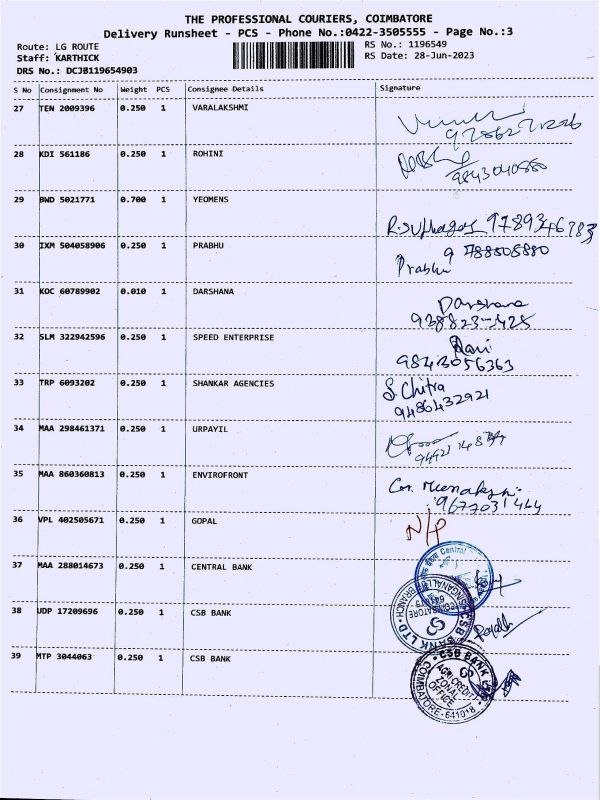 THE PROFESSIONAL COURIERS, COIMBATORE
Delivery Runsheet - PCS - Phone No.:0422-3505555 - Page No.:3
Route: LG ROUTE
RS No.: 1196549
Staff: KARTHICK
RS Date: 28-Jun-2023
DRS No.: DCJB119654903
S No Consignment No Weight PCS Consignee Details Signature
27 TEN 2009396 0.250 1 VARALAKSHMI
28 KDI 561186 0.250 1 ROHINI
9843040880
29 BWD 5021771 0.700 1 YEOMENS
9789346783
30 IXM 504058906 0.250 1 PRABHU
9788505880
Prabhu
31 KOC 60789902 0.010 1 DARSHANA
Darshana
32 SLM 322942596 0.250 1 SPEED ENTERPRISE
9843056363
33 TRP 6093202 0.250 1 SHANKAR AGENCIES
S. Chitra
9486432921
34 MAA 298461371 0.250 1 URPAYIL
35 MAA 860360813 0.250 1 ENVIROFRONT
9677031464
36 VPL 402505671 0.250 1 GOPAL
N/P
37 MAA 288014673 0.250 1 CENTRAL BANK
Central
38 UDP 17209696 0.250 1 CSB BANK
CSB BANK LTD
BRANCH
39 MTP 3044063 0.250 1 CSB BANK
CSB BANK
AGRI CREDIT
ZONAL
OFFICE
COIMBATORE-641018